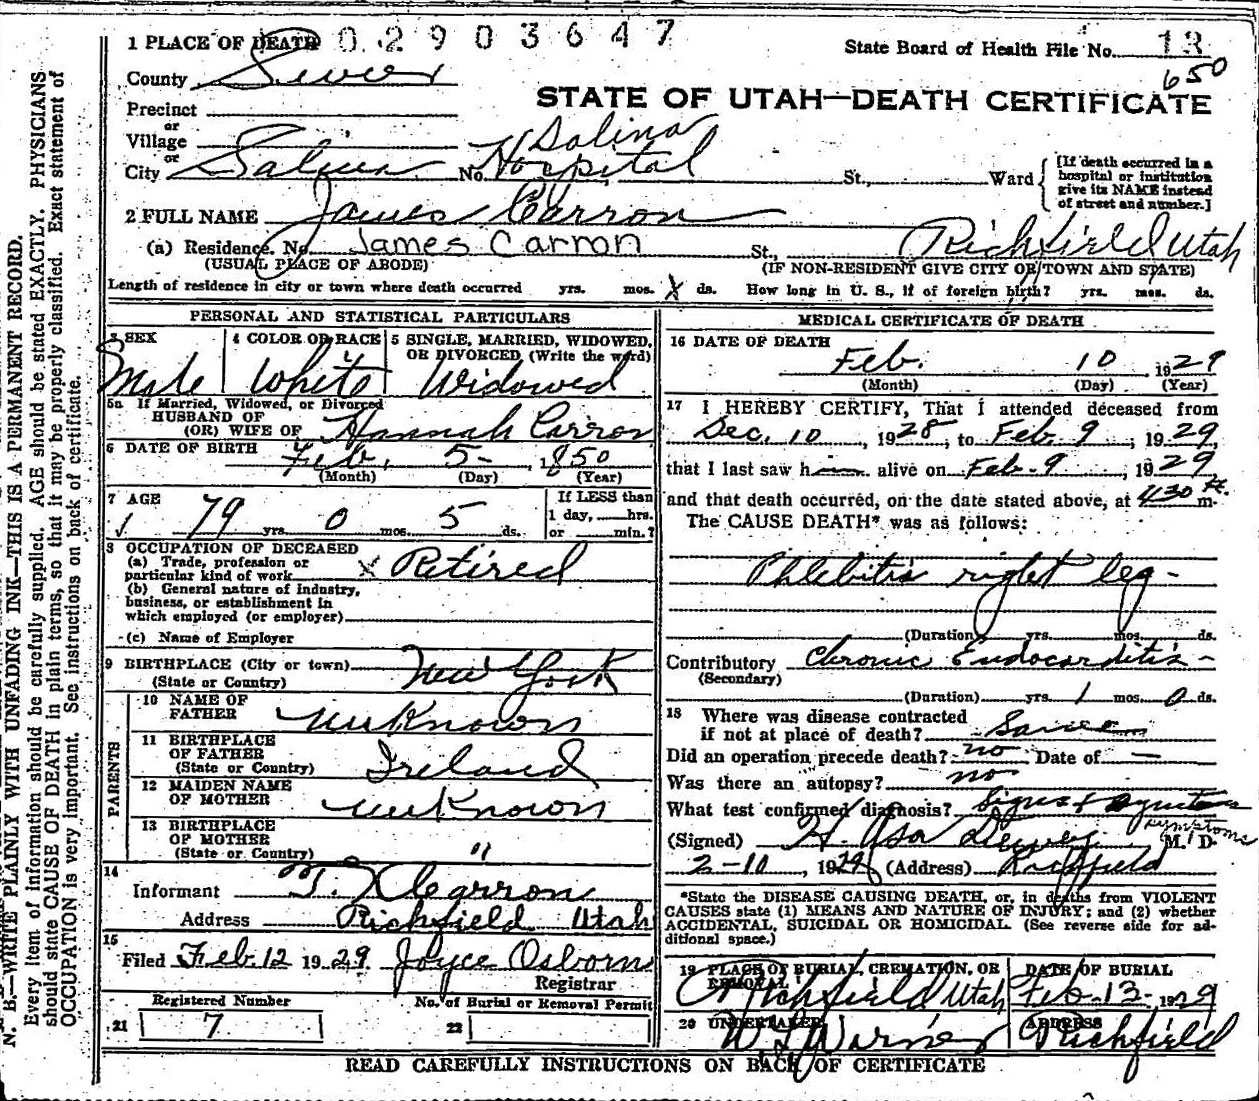 1 PLACE OF DEATH 0 2 9 0 3 6 4 7
State Board of Health File No. 13
650
County Sevier
STATE OF UTAH—DEATH CERTIFICATE
Precinct
or
Village
or
City Salina No. Salina Hospital, St., Ward
[If death occurred in a hospital or institution give its NAME instead of street and number.]
2 FULL NAME James Carron
(a) Residence. No. James Carron St., Richfield Utah
(USUAL PLACE OF ABODE) (IF NON-RESIDENT GIVE CITY OR TOWN AND STATE)
Length of residence in city or town where death occurred yrs. mos. X ds. How long in U. S., if of foreign birth? yrs. mos. ds.
PERSONAL AND STATISTICAL PARTICULARS
3 SEX 4 COLOR OR RACE 5 SINGLE, MARRIED, WIDOWED, OR DIVORCED (Write the word)
Male White Widowed
5a If Married, Widowed, or Divorced
HUSBAND OF
(OR) WIFE OF Hannah Carron
6 DATE OF BIRTH Feb. 5- , 1850
(Month) (Day) (Year)
7 AGE
79 yrs. 0 mos. 5 ds.
If LESS than
1 day, hrs.
or min.?
8 OCCUPATION OF DECEASED
(a) Trade, profession or
particular kind of work X Retired
(b) General nature of industry,
business, or establishment in
which employed (or employer)
(c) Name of Employer
9 BIRTHPLACE (City or town) New York
(State or Country)
PARENTS
10 NAME OF
FATHER unknown
11 BIRTHPLACE
OF FATHER Ireland
(State or Country)
12 MAIDEN NAME
OF MOTHER unknown
13 BIRTHPLACE
OF MOTHER
(State or Country) "
14
Informant Carron
Address Richfield Utah
15
Filed Feb. 12 1929 Joyce Osborn
Registrar
Registered Number No. of Burial or Removal Permit
21 7 22
MEDICAL CERTIFICATE OF DEATH
16 DATE OF DEATH
Feb. 10 , 1929
(Month) (Day) (Year)
17 I HEREBY CERTIFY, That I attended deceased from
Dec. 10 , 1928, to Feb. 9 , 1929,
that I last saw h alive on Feb-9 , 1929
and that death occurred, on the date stated above, at 430 m.
The CAUSE DEATH* was as follows:
Phlebitis right leg-
(Duration) yrs. mos. ds.
Contributory Chronic Endocarditis-
(Secondary)
(Duration) yrs. 1 mos. 0 ds.
18 Where was disease contracted
if not at place of death? Same
Did an operation precede death? no Date of —
Was there an autopsy? no
What test confirmed diagnosis? Signs + symptoms
symptoms
(Signed) H. Asa Dewey M. D.
2-10 , 1929 (Address) Richfield
*State the DISEASE CAUSING DEATH, or, in deaths from VIOLENT
CAUSES state (1) MEANS AND NATURE OF INJURY; and (2) whether
ACCIDENTAL, SUICIDAL OR HOMICIDAL. (See reverse side for ad-
ditional space.)
19 PLACE OF BURIAL, CREMATION, OR REMOVAL DATE OF BURIAL
Richfield Utah Feb-13-1929
20 UNDERTAKER ADDRESS
Warner Richfield
READ CAREFULLY INSTRUCTIONS ON BACK OF CERTIFICATE
N. B.—WRITE PLAINLY WITH UNFADING INK—THIS IS A PERMANENT RECORD.
Every item of information should be carefully supplied. AGE should be stated EXACTLY. PHYSICIANS
should state CAUSE OF DEATH in plain terms, so that it may be properly classified. Exact statement of
OCCUPATION is very important. See instructions on back of certificate.